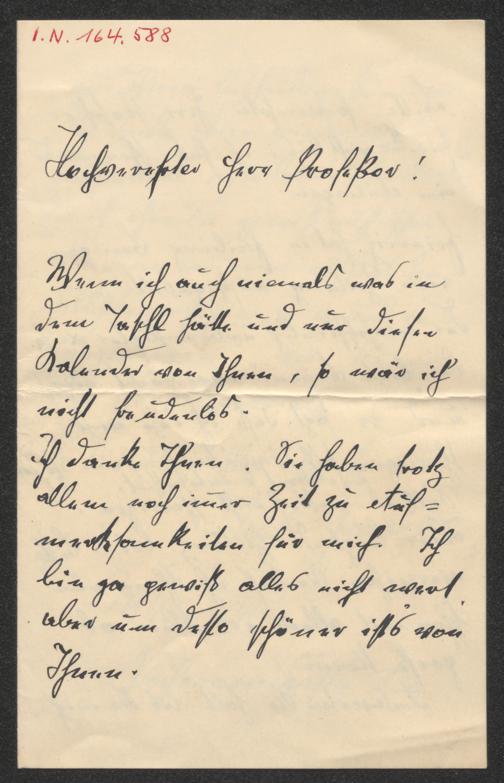 I.N. 164.588
Hochverehrter Herr Professor!
Wenn ich auch niemals was in
dem Taschl hätte und nur diesen
Kalender von Ihnen, so wär ich
nicht freudenlos.
Ich danke Ihnen. Sie haben trotz
allem noch immer Zeit zu Auf=
merksamkeiten für mich. Ich
bin ja gewiß alles nicht wert,
aber um desto schöner ist's von
Ihnen.